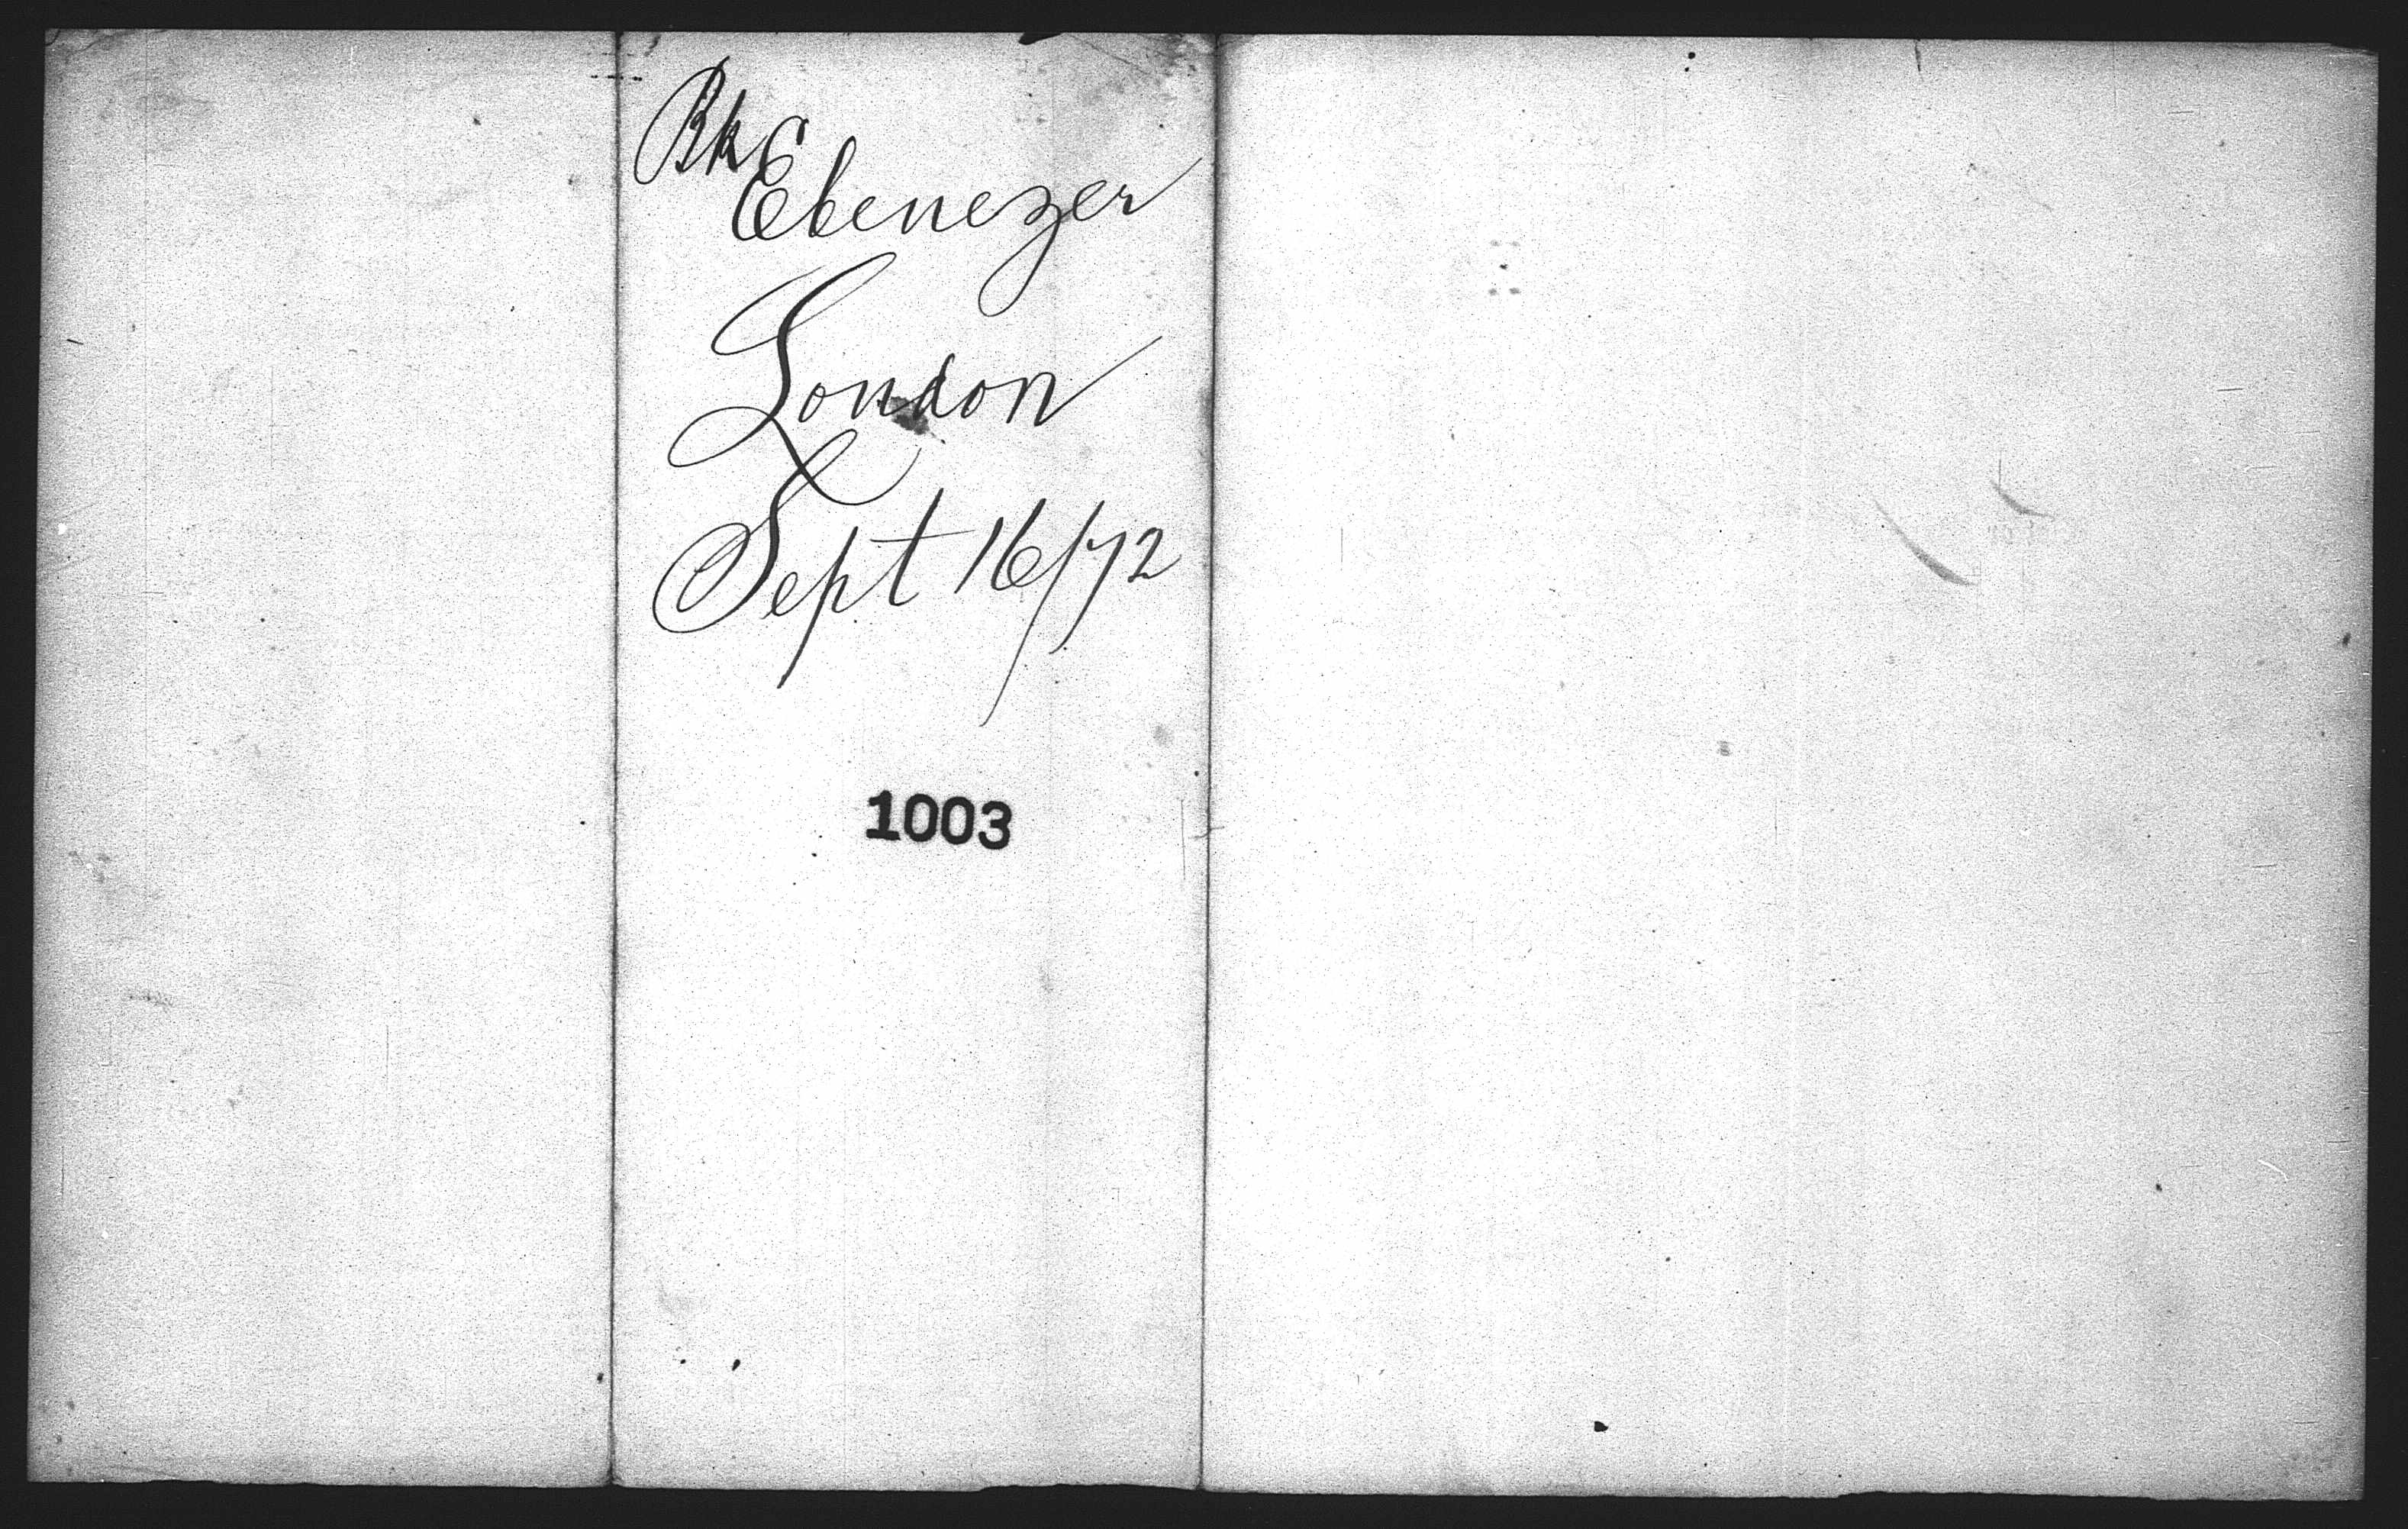 Bk
Ebenezer
London
Sept 16/72
1003